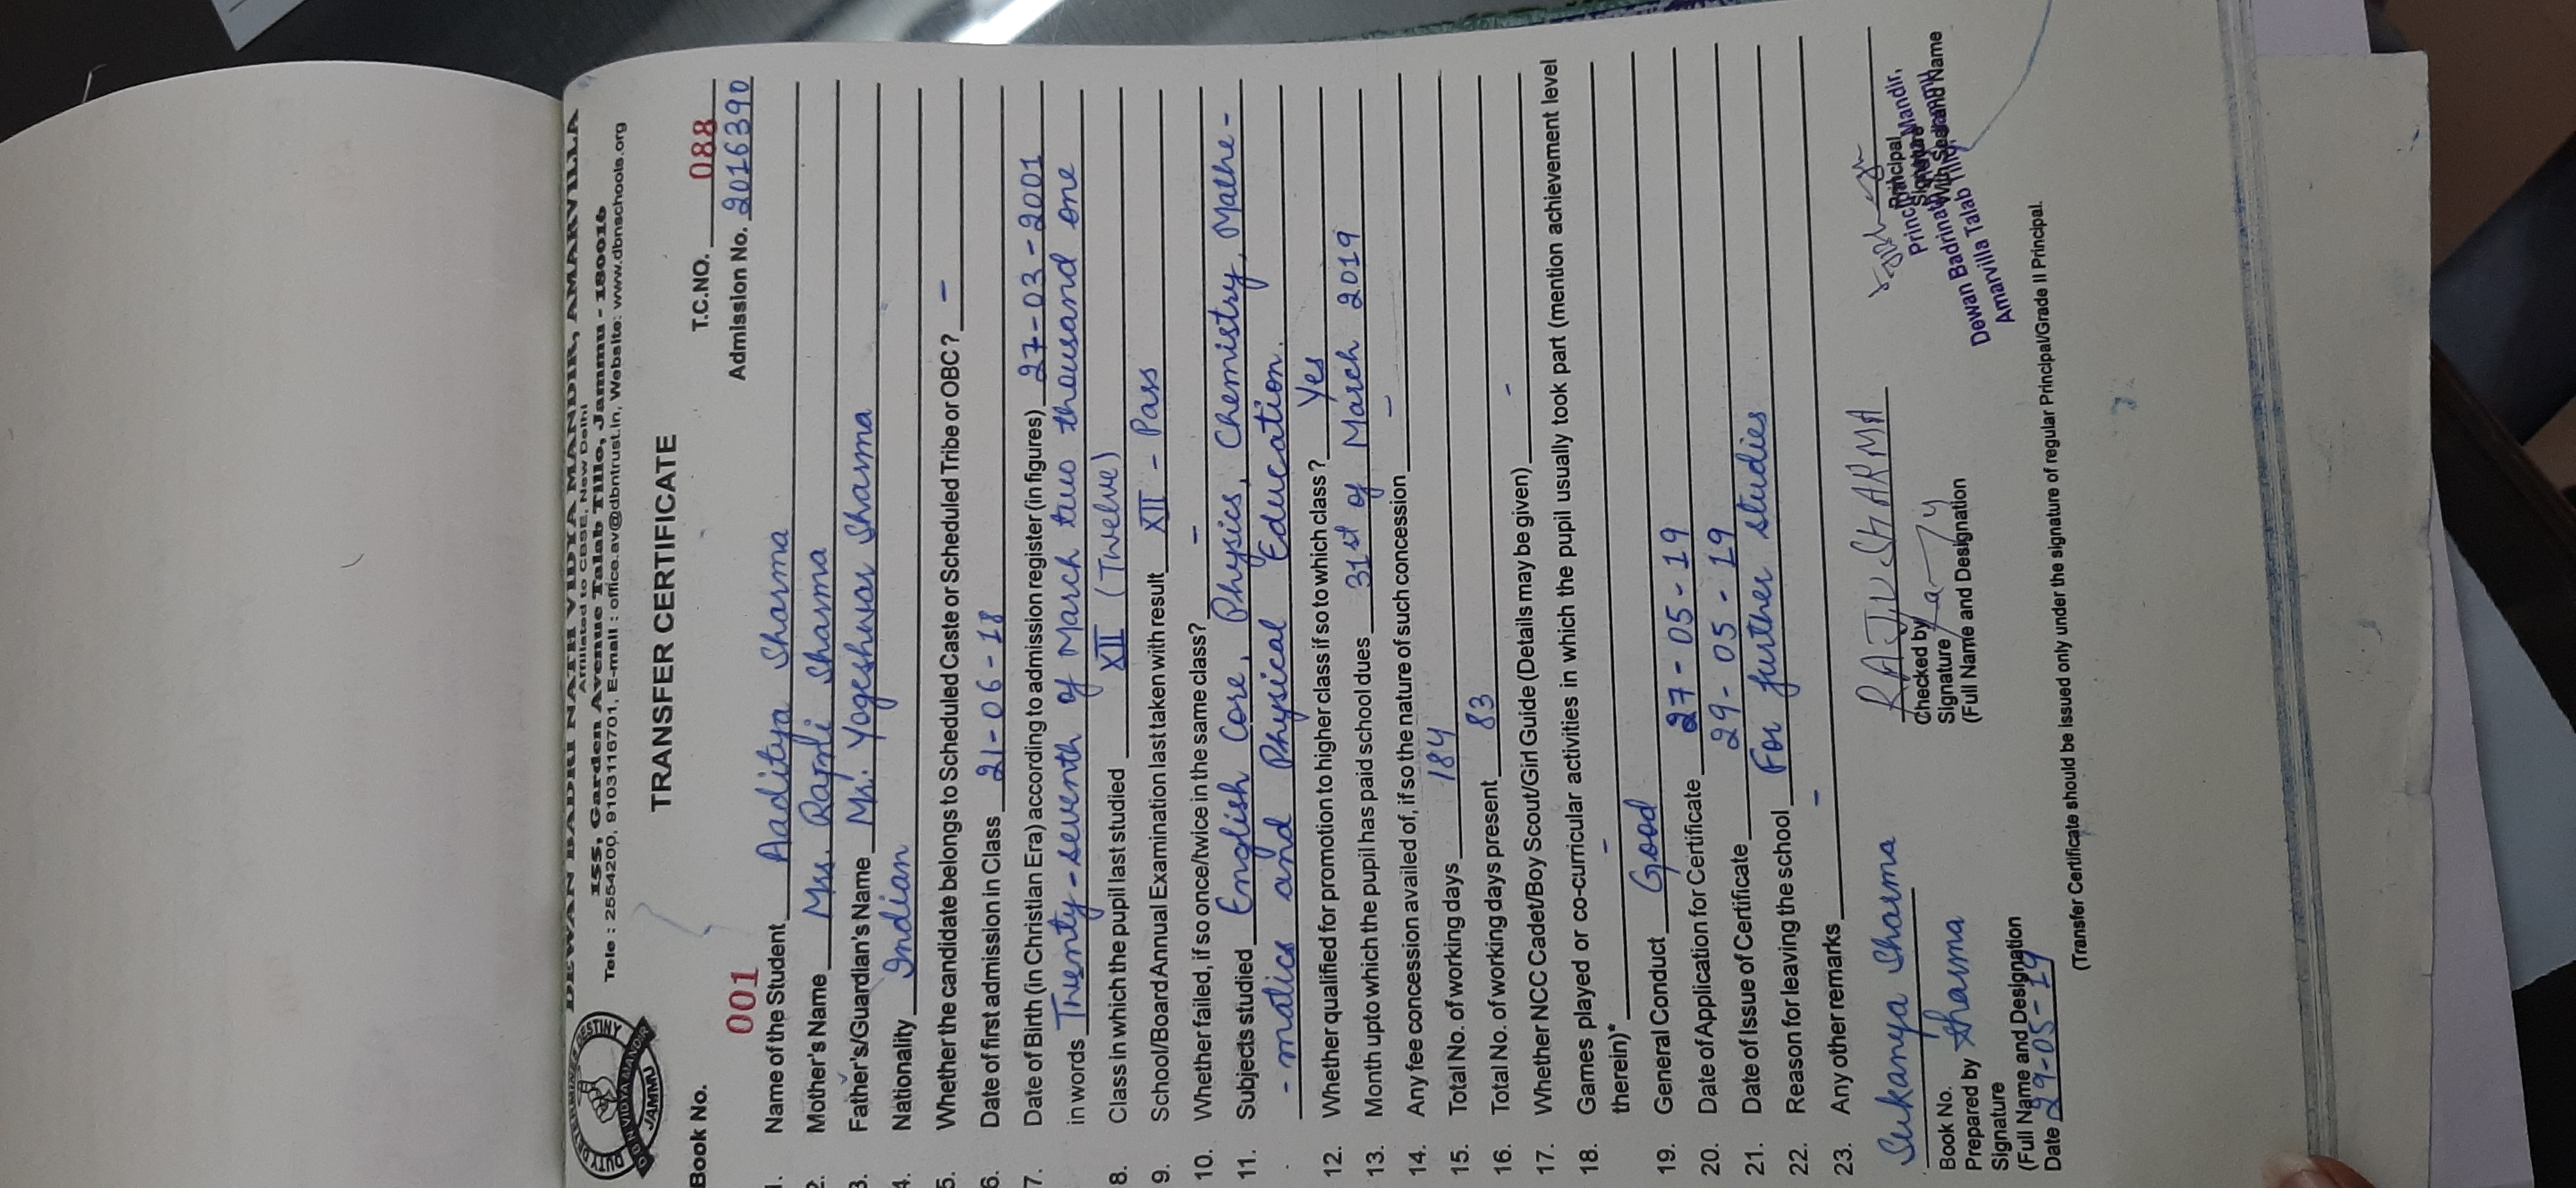 DEWAN BADRI NATH VIDYA MANDIR, AMARVILLA
Affiliated to CBSE, New Delhi
155, Garden Avenue Talab Tillo, Jammu - 180016
Tele : 2554200, 9103116701, E-mail : office.av@dbntrust.in, Website: www.dbnschools.org
DUTY DETERMINES DESTINY
D B N VIDYA MANDIR
JAMMU
TRANSFER CERTIFICATE
Book No. 001 T.C.NO. 088
Admission No. 2016390
1. Name of the Student Aaditya Sharma
2. Mother's Name Mrs. Sharma
3. Father's/Guardian's Name Mr. Yogeshwar Sharma
4. Nationality Indian
5. Whether the candidate belongs to Scheduled Caste or Scheduled Tribe or OBC? -
6. Date of first admission in Class 21-06-18
7. Date of Birth (in Christian Era) according to admission register (in figures) 27-03-2001
in words Twenty-seventh of March two thousand one
8. Class in which the pupil last studied XII (Twelve)
9. School/Board Annual Examination last taken with result XII - Pass
10. Whether failed, if so once/twice in the same class? -
11. Subjects studied English Core, Physics, Chemistry, Mathe-
-matics and Physical Education.
12. Whether qualified for promotion to higher class if so to which class? Yes
13. Month upto which the pupil has paid school dues 31st of March 2019
14. Any fee concession availed of, if so the nature of such concession -
15. Total No. of working days 184
16. Total No. of working days present 83
17. Whether NCC Cadet/Boy Scout/Girl Guide (Details may be given) -
18. Games played or co-curricular activities in which the pupil usually took part (mention achievement level
therein)* -
19. General Conduct Good
20. Date of Application for Certificate 27-05-19
21. Date of Issue of Certificate 29-05-19
22. Reason for leaving the school For further studies
23. Any other remarks -
Sukanya Sharma RAJIV SHARMA
Book No. Checked by Principal
Prepared by Sharma Signature Signature
Signature (Full Name and Designation) With Seal and Name
(Full Name and Designation
Date 29-05-19
Principal
Dewan Badrinath Vidya Mandir,
Amarvilla Talab Tillo, Jammu
(Transfer Certificate should be issued only under the signature of regular Principal/Grade II Principal.